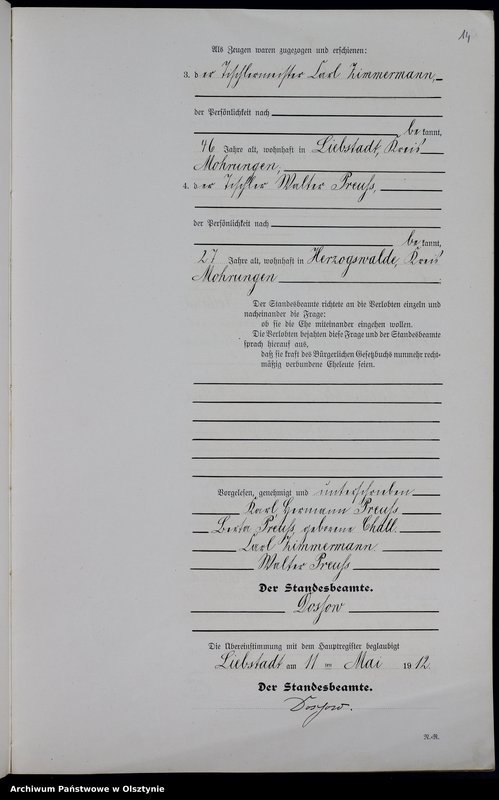 14
Als Zeugen waren zugezogen und erschienen:
3. der Tischlermeister Carl Zimmermann,
der Persönlichkeit nach
be kannt,
46 Jahre alt, wohnhaft in Liebstadt, Kreis
Mohrungen,
4. der Tischler Walter Preuß,
der Persönlichkeit nach
be kannt,
27 Jahre alt, wohnhaft in Herzogswalde, Kreis
Mohrungen
Der Standesbeamte richtete an die Verlobten einzeln und
nacheinander die Frage:
ob sie die Ehe miteinander eingehen wollen.
Die Verlobten bejahten diese Frage und der Standesbeamte
sprach hierauf aus,
daß sie kraft des Bürgerlichen Gesetzbuchs nunmehr recht-
mäßig verbundene Eheleute seien.
Vorgelesen, genehmigt und unterschrieben
Karl Hermann Preuss
Berta Preuß geborene
Carl Zimmermann
Walter Preuß
Der Standesbeamte.
Dossow
Die Übereinstimmung mit dem Hauptregister beglaubigt
Liebstadt am 11 ten Mai 1912.
Der Standesbeamte.
Dossow.
Archiwum Państwowe w Olsztynie